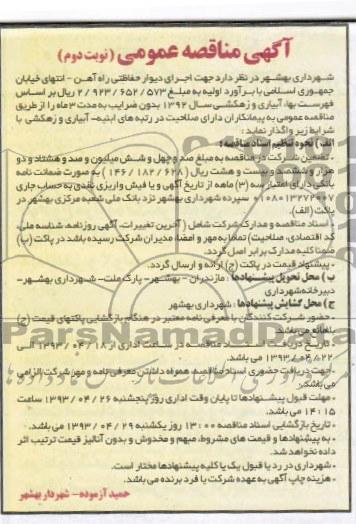 آگهی مناقصه عمومی (نوبت دوم)
شهرداری بهشهر در نظر دارد جهت اجرای دیوار حفاظتی راه آهن - انتهای خیابان
جمهوری اسلامی با برآورد اولیه به مبلغ ۲/۹۲۳/۶۵۲/۵۷۳ ریال بر اساس
فهرست بها، آبیاری و زهکشی سال ۱۳۹۲ بدون ضرایب به مدت ۳ ماه را از طریق
مناقصه عمومی به پیمانکاران دارای صلاحیت در رتبه های ابنیه- آبیاری و زهکشی با
شرایط زیر واگذار نماید:
الف) نحوه تنظیم اسناد مناقصه:
- تضمین شرکت در مناقصه به مبلغ صد و چهل و شش میلیون و صد و هشتاد و دو
هزار و ششصد و بیست و هشت ریال (۱۴۶/۱۸۲/۶۲۸) به صورت ضمانت نامه
بانکی دارای اعتبار سه (۳) ماهه از تاریخ آگهی و یا فیش واریزی نقدی به حساب جاری
۰۱۰۸۰۱۳۲۷۲۰۰۷ سپرده شهرداری بهشهر نزد بانک ملی شعبه مرکزی بهشهر در
پاکت (الف).
- اسناد مناقصه و مدارک شرکت شامل (آخرین تغییرات، آگهی روزنامه، شناسه ملی،
کد اقتصادی، صلاحیت) تماما به مهر و امضاء مدیران شرکت رسیده باشد در پاکت (ب)
ضمنا کلیه مدارک برابر اصل گردد.
- پیشنهاد قیمت در پاکت (ج) ارائه و ارسال گردد.
ب) محل تحویل پیشنهادها: مازندران - بهشهر- پارک ملت- شهرداری بهشهر-
دبیرخانه شهرداری
ج) محل گشایش پیشنهادها: شهرداری بهشهر
- حضور شرکت کنندگان با معرفی نامه معتبر در هنگام بازگشایی پاکتهای قیمت (ج)
بلامانع می باشد.
- تاریخ دریافت اسناد مناقصه در ساعت اداری از ۱۳۹۳/۰۴/۱۸ الی
۱۳۹۳/۰۴/۲۲ می باشد.
- جهت دریافت حضوری اسناد مناقصه، همراه داشتن معرفی نامه و مهر شرکت الزامی
می باشد.
- مهلت قبول پیشنهادها تا پایان وقت اداری روز پنجشنبه ۱۳۹۳/۰۴/۲۶ ساعت
۱۴:۱۵ می باشد.
- تاریخ بازگشایی اسناد مناقصه ۱۳:۰۰ روز یکشنبه ۱۳۹۳/۰۴/۲۹ می باشد.
- به پیشنهادها و قیمت های مشروط، مبهم و مخدوش و بدون آنالیز قیمت ترتیب اثر
داده نخواهد شد.
- شهرداری در رد یا قبول یک یا کلیه پیشنهادها مختار است.
- هزینه چاپ آگهی به عهده شرکت یا فرد برنده می باشد.
حمید آزموده- شهردار بهشهر